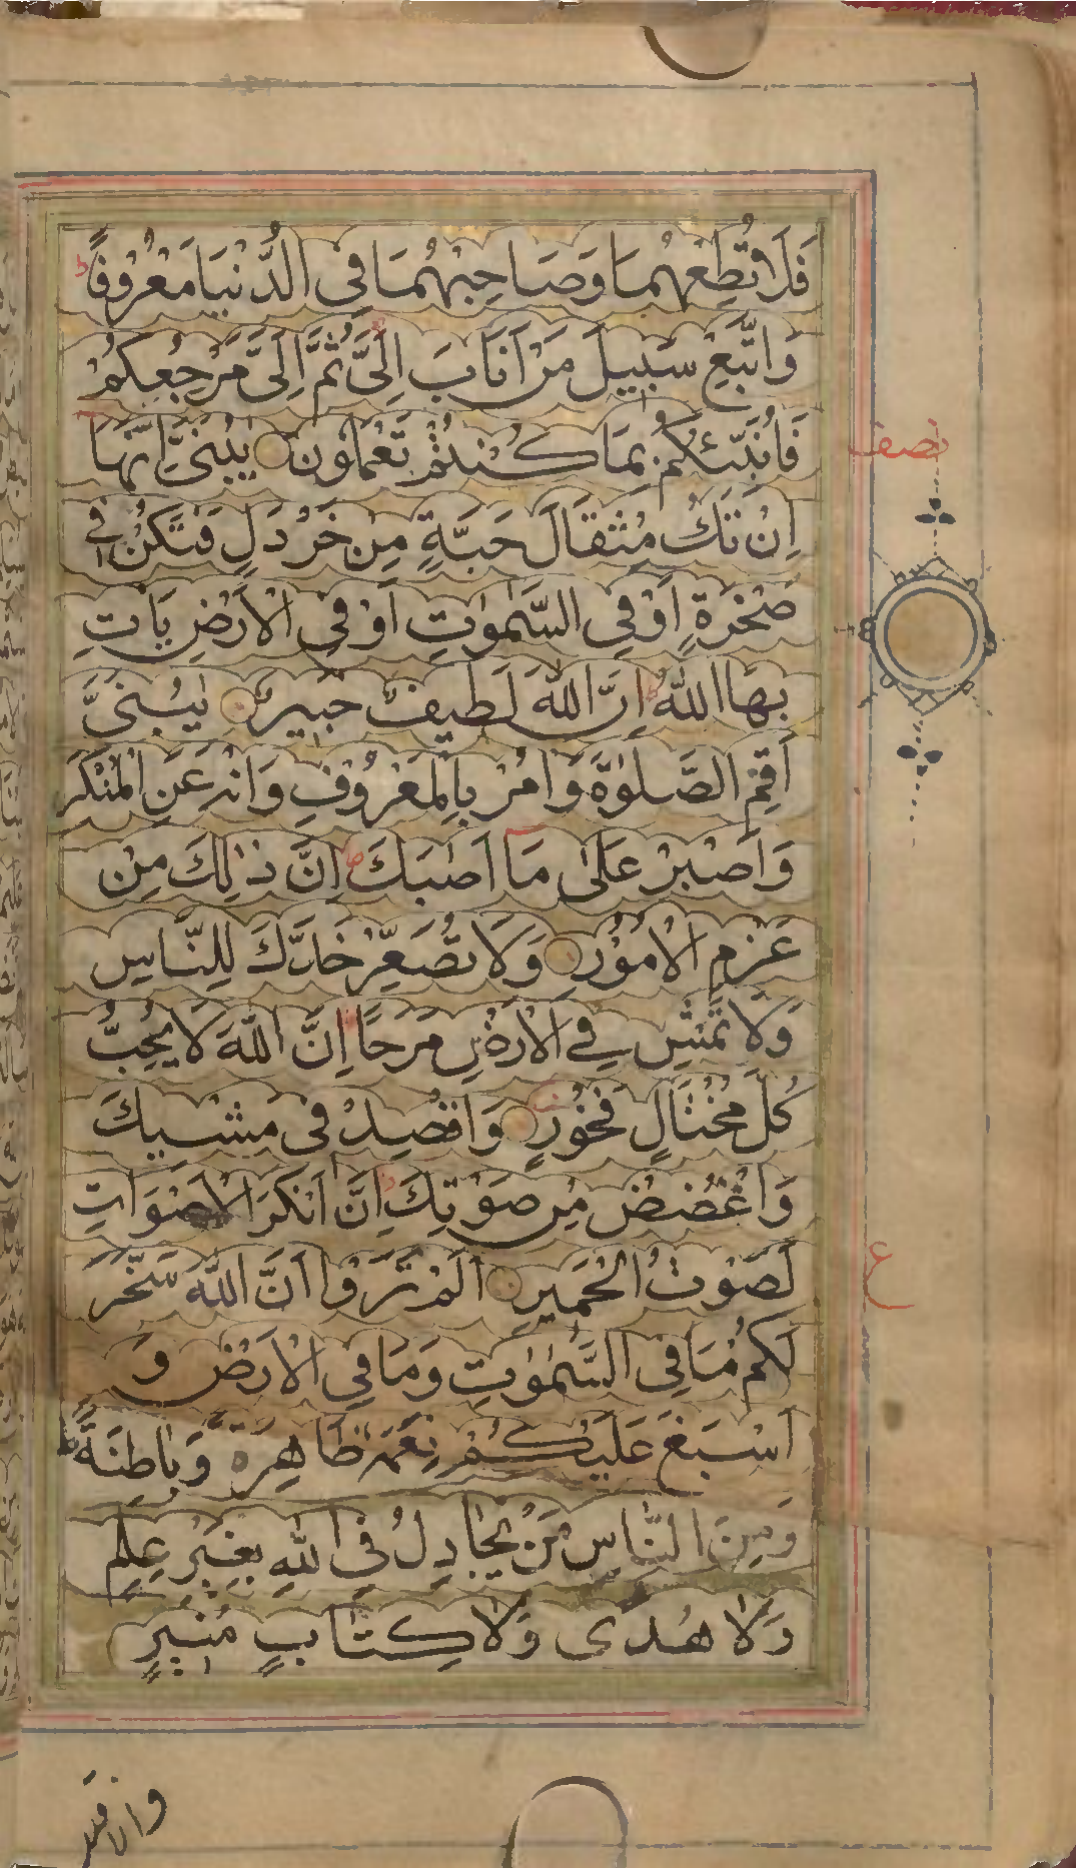 فَلَا تُطِعْهُمَا وَصَاحِبْهُمَا فِی الدُّنْیَا مَعْرُوْفًا ط
وَاتَّبِعْ سَبِیْلَ مَنْ اَنَابَ اِلَیَّ ثُمَّ اِلَیَّ مَرْجِعُكُمْ
فَاُنَبِّئُكُمْ بِمَا كُنْتُمْ تَعْمَلُوْنَ یٰبُنَیَّ اِنَّهَا
نصف
اِنْ تَكُ مِثْقَالَ حَبَّةٍ مِنْ خَرْدَلٍ فَتَكُنْ فِی
صَخْرَةٍ اَوْ فِی السَّمٰوٰتِ اَوْ فِی الْاَرْضِ یَاْتِ
بِهَا اللّٰهُ ط اِنَّ اللّٰهَ لَطِیْفٌ خَبِیْرٌ یٰبُنَیَّ
اَقِمِ الصَّلٰوةَ وَاْمُرْ بِالْمَعْرُوْفِ وَانْهَ عَنِ الْمُنْكَرِ
وَاصْبِرْ عَلٰی مَا اَصَابَكَ ط اِنَّ ذٰلِكَ مِنْ
عَزْمِ الْاُمُوْرِ وَلَا تُصَعِّرْ خَدَّكَ لِلنَّاسِ
وَلَا تَمْشِ فِی الْاَرْضِ مَرَحًا اِنَّ اللّٰهَ لَا یُحِبُّ
كُلَّ مُخْتَالٍ فَخُوْرٍ وَاقْصِدْ فِی مَشْیِكَ
وَاغْضُضْ مِنْ صَوْتِكَ ط اِنَّ اَنْكَرَ الْاَصْوَاتِ
لَصَوْتُ الْحَمِیْرِ اَلَمْ تَرَوْا اَنَّ اللّٰهَ سَخَّرَ
ع
لَكُمْ مَا فِی السَّمٰوٰتِ وَمَا فِی الْاَرْضِ وَ
اَسْبَغَ عَلَیْكُمْ نِعَمَهٗ ظَاهِرَةً وَّبَاطِنَةً ط
وَمِنَ النَّاسِ مَنْ یُّجَادِلُ فِی اللّٰهِ بِغَیْرِ عِلْمٍ
وَلَا هُدًی وَلَا كِتَابٍ مُنِیْرٍ
واذا قیل